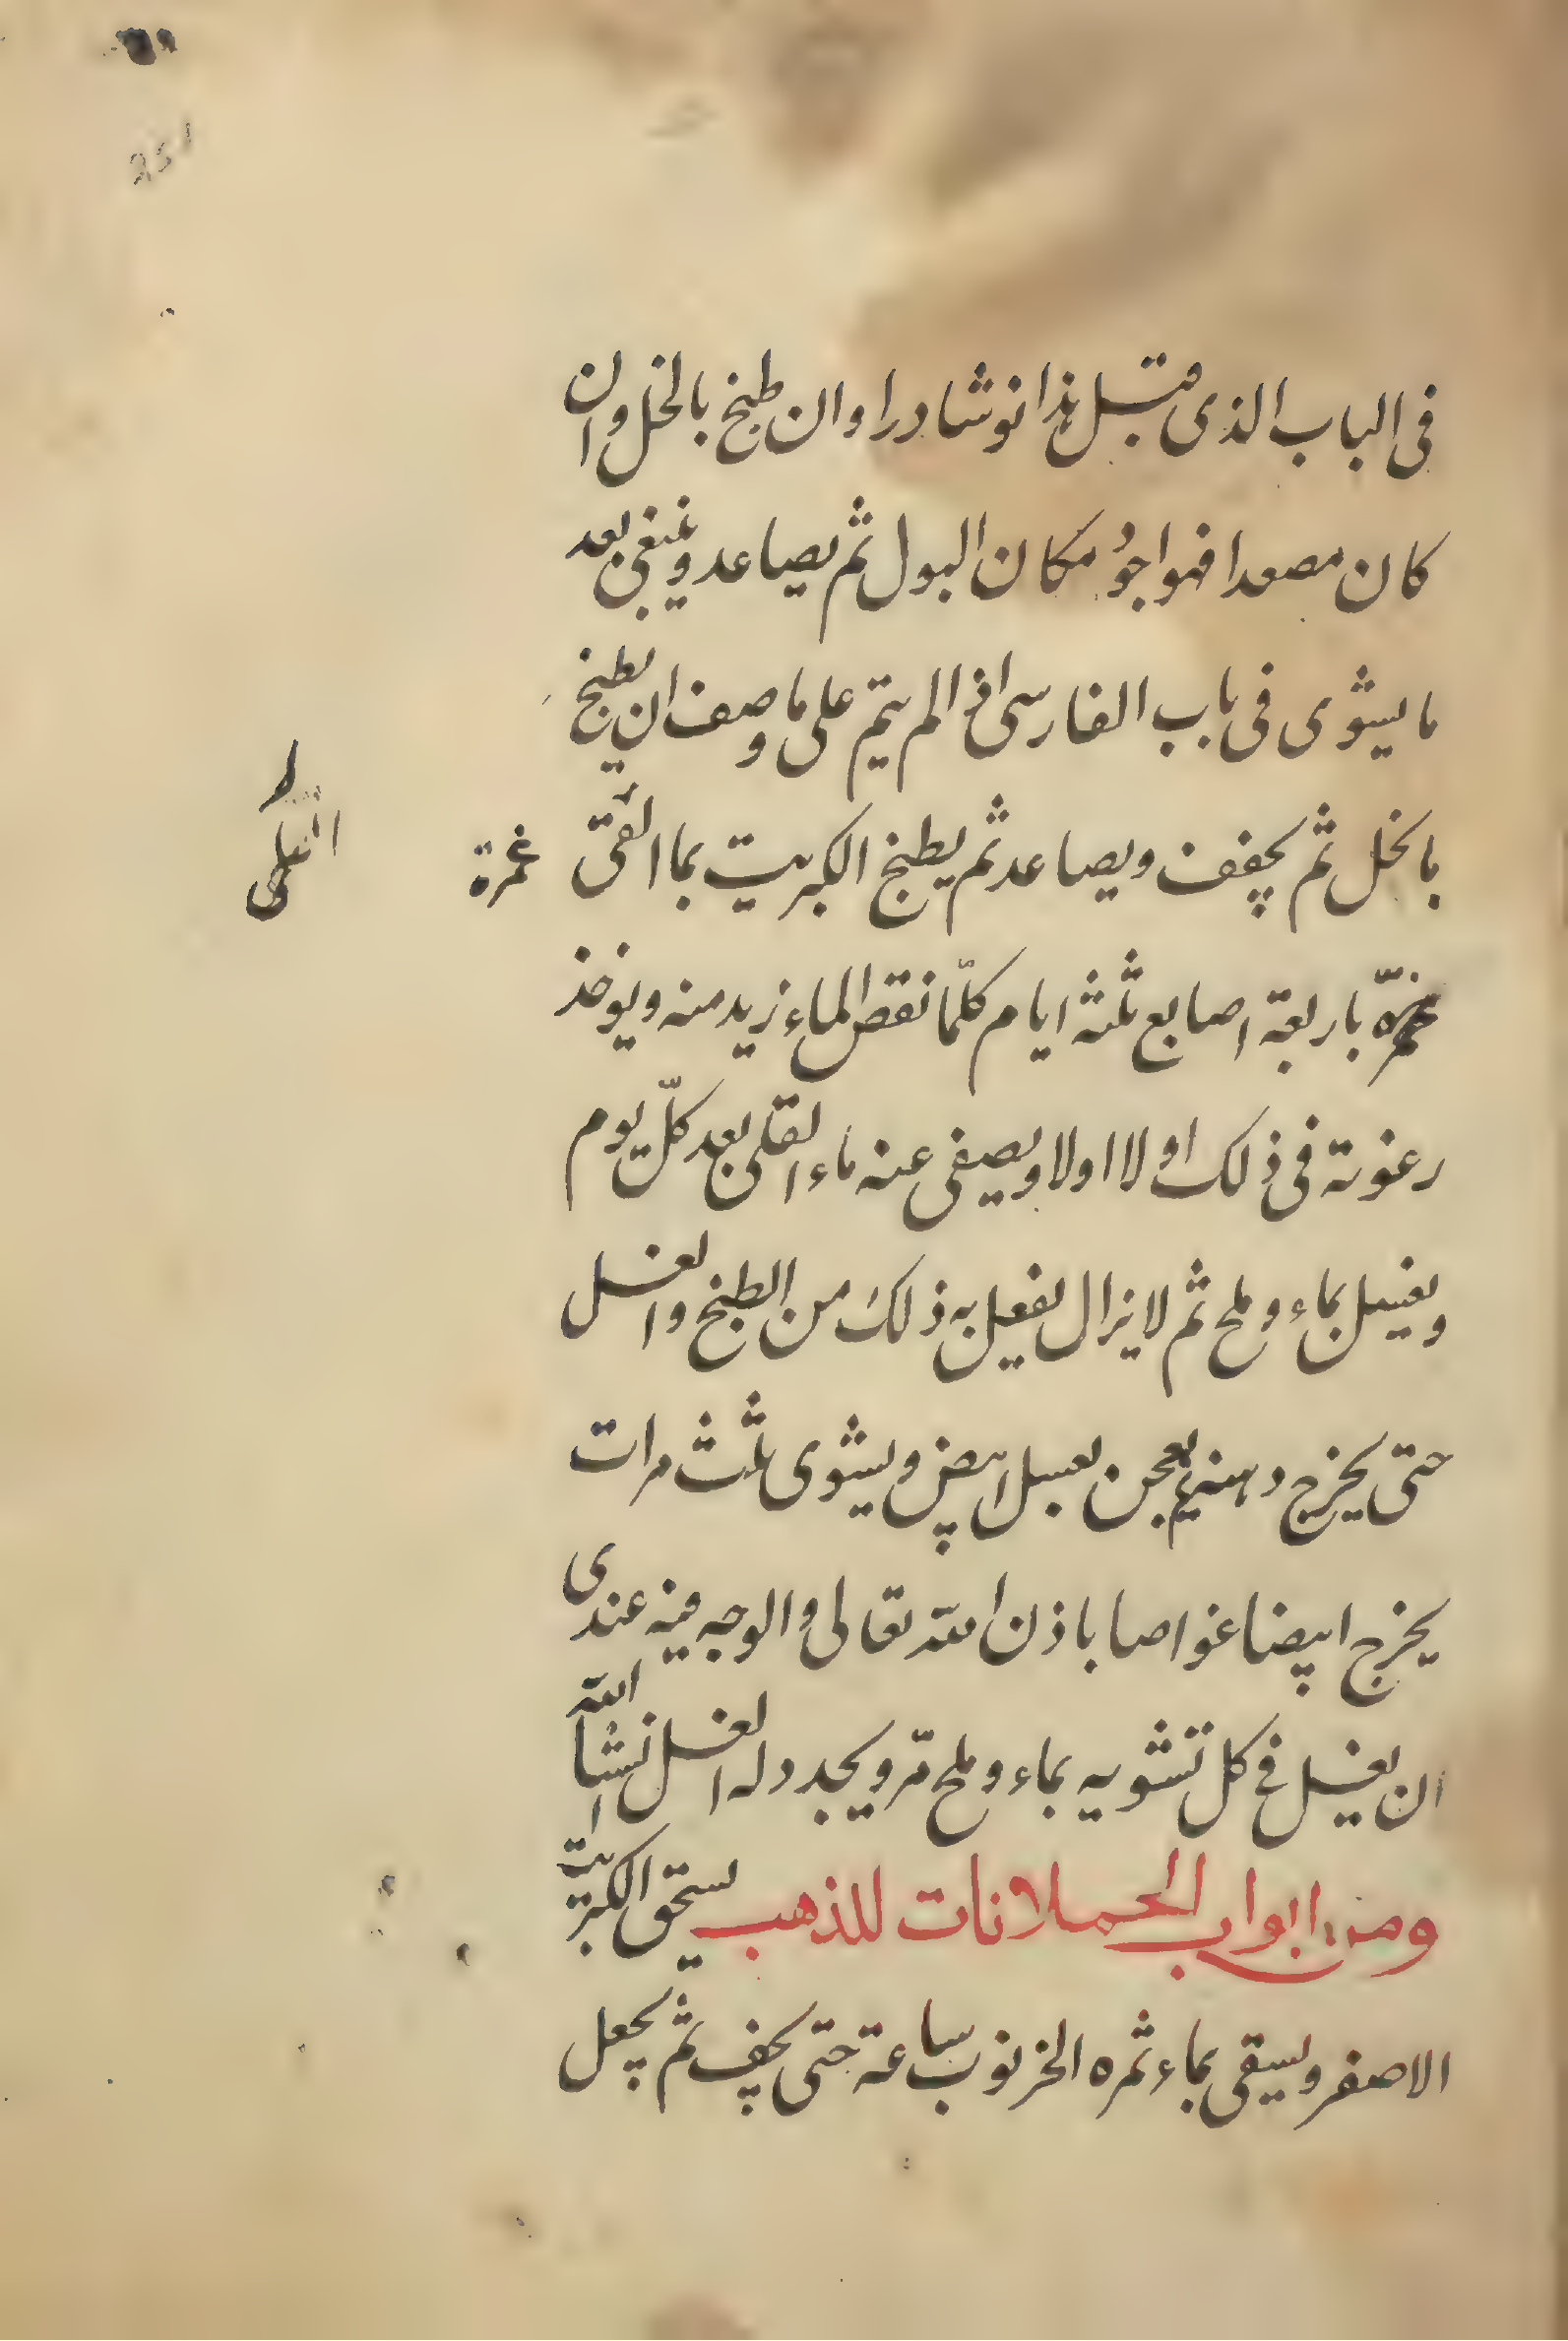 251
فى الباب الذى قبل هذا نوشادرا وان طبخ بالخل وان
كان مصعدا فهو اجود مكان البول ثم يصاعد وينبغى بعد
ما يشوى فى باب الفارسى اذا لم يتم على ما وصف ان يطبخ
بالخل ثم يجفف ويصاعد ثم يطبخ الكبريت بما القى
غمرة
القلى
باربعة اصابع ثلثه ايام كلّما نقص الماء زيد منه ويؤخذ
رغوته فى ذلك اولا اولا ويصفى عنه ماء القلى بعد كلّ يوم
ويغسل بماء وملح ثم لا يزال يفعل به ذلك من الطبخ والغسل
حتى يخرج دهنه ثم يعجن بعسل ابيض ويشوى ثلث مرات
يخرج ابيضا غواصا باذن الله تعالى والوجه فيه عندى
ان يغسل فى كل تشويه بماء وملح مّر ويجدد له الغسل انشا الله
ومن ابواب الحملانات للذهب يستحق الكبريت
الاصفر ويسقى بماء ثمره الخرنوب ساعة حتى يجف ثم يجعل